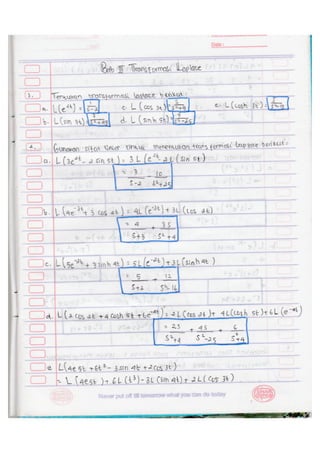 Date :
Bab III Transformasi Laplace
1. Tentukan transformasi laplace berikut :
a. L(e^2t) = 1/s-2 c. L (cos 3t) = s/s²+9 e. L (cosh 3t) = s/s²-9
b. L(sin 3t) = 3/s²+9 d. L (sinh 5t) = 5/s²-25
2. Gunakan sifat linier untuk menentukan transformasi laplace berikut :
a. L(3e^2t - 2 sin 5t) = 3 L (e^2t - 2L (sin 5t)
= 3/s-2 - 10/s²+25
b. L(4e^-3t + 3 cos 2t) = 4L (e^-3t) + 3L (cos 2t)
= 4/s+3 + 3s/s²+4
c. L(5e^-2t + 3sinh 4t) = 5L (e^-2t) + 3L (sinh 4t)
= 5/s+2 + 12/s²-16
d. L(2 cos 2t + 4 cosh 5t + 6e^-4t) = 2L (cos 2t) + 4L (cosh 5t) + 6L (e^-4t)
= 2s/s²+4 + 4s/s²-25 + 6/s+4
e L(4e5t + 6t³ - 3sin 4t + 2cos 3t)
= L (4e5t) + 6L (t³) - 3L (sin 4t) + 2L (cos 3t)
Never put off till tomorrow what you can do today